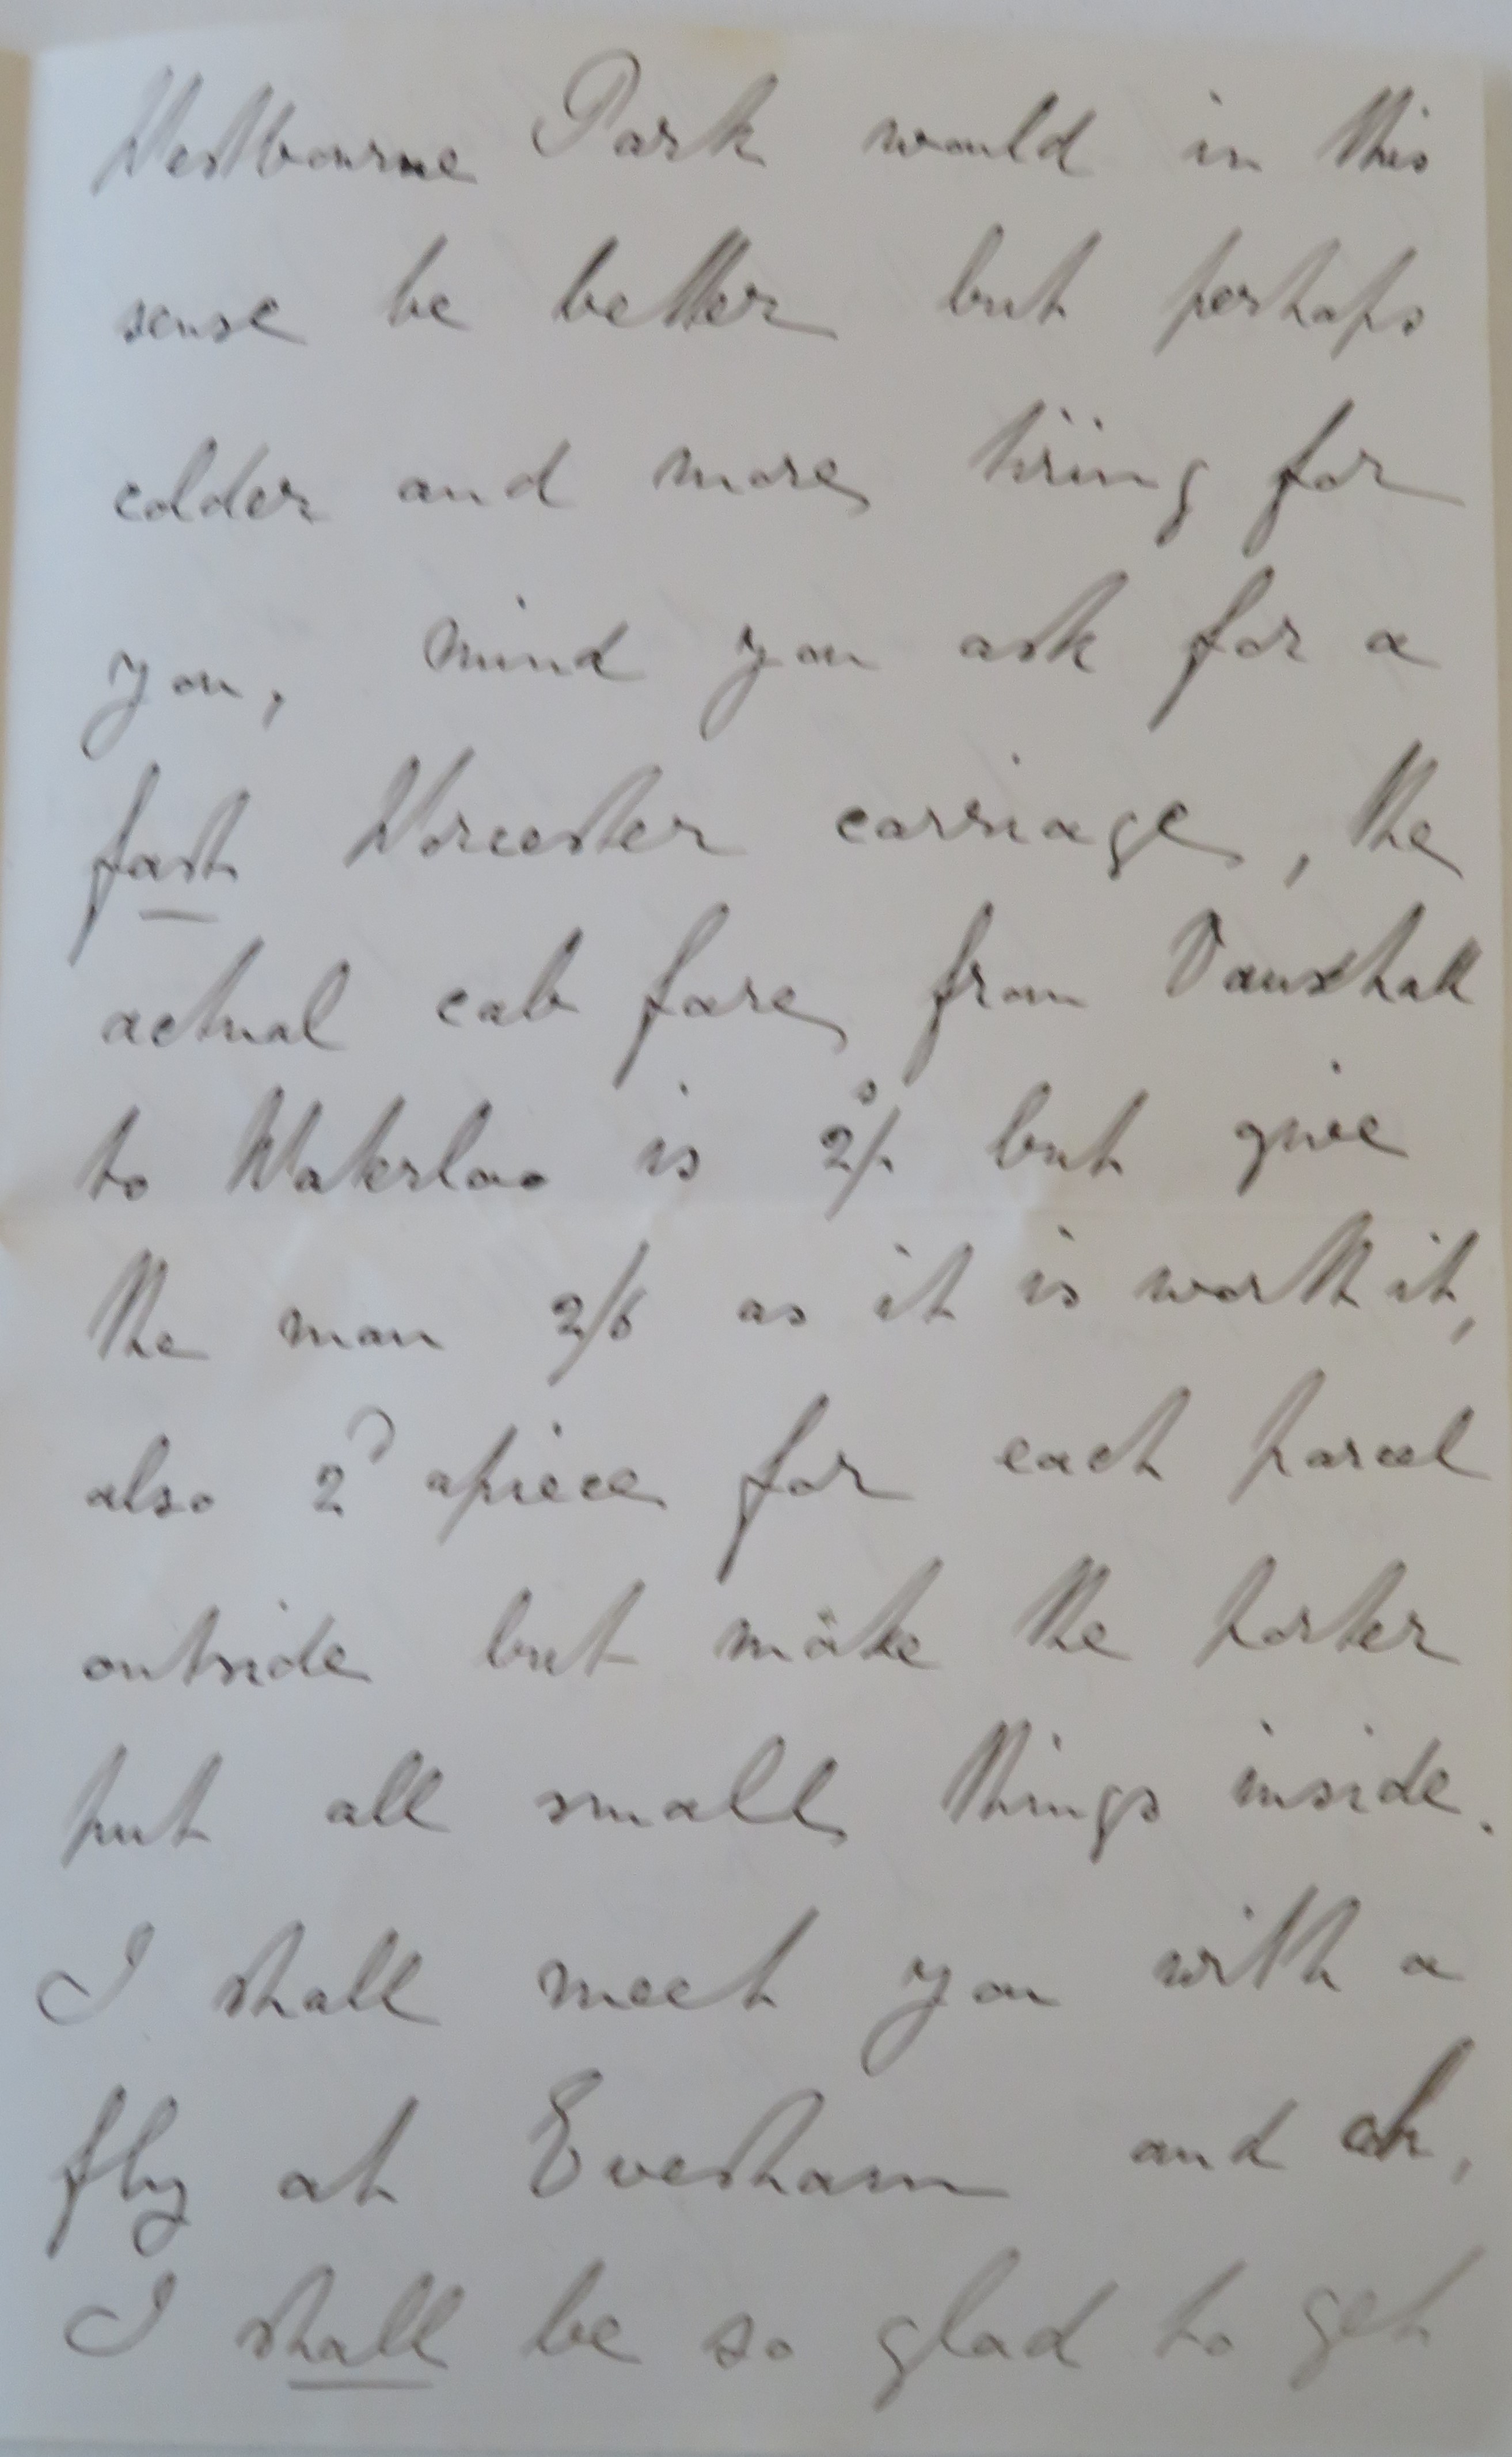 Westbourne Park would in this
sense be better but perhaps
colder and more tiring for
you, mind you ask for a
fast Worcester carriage, the
actual cab fare from Vauxhall
to Waterloo is 2s/- but give
the man 2/6 as it is worth it,
also 2d apiece for each parcel
outside but make the porter
put all small things inside.
I shall meet you with a
fly at Evesham and oh,
I shall be so glad to get